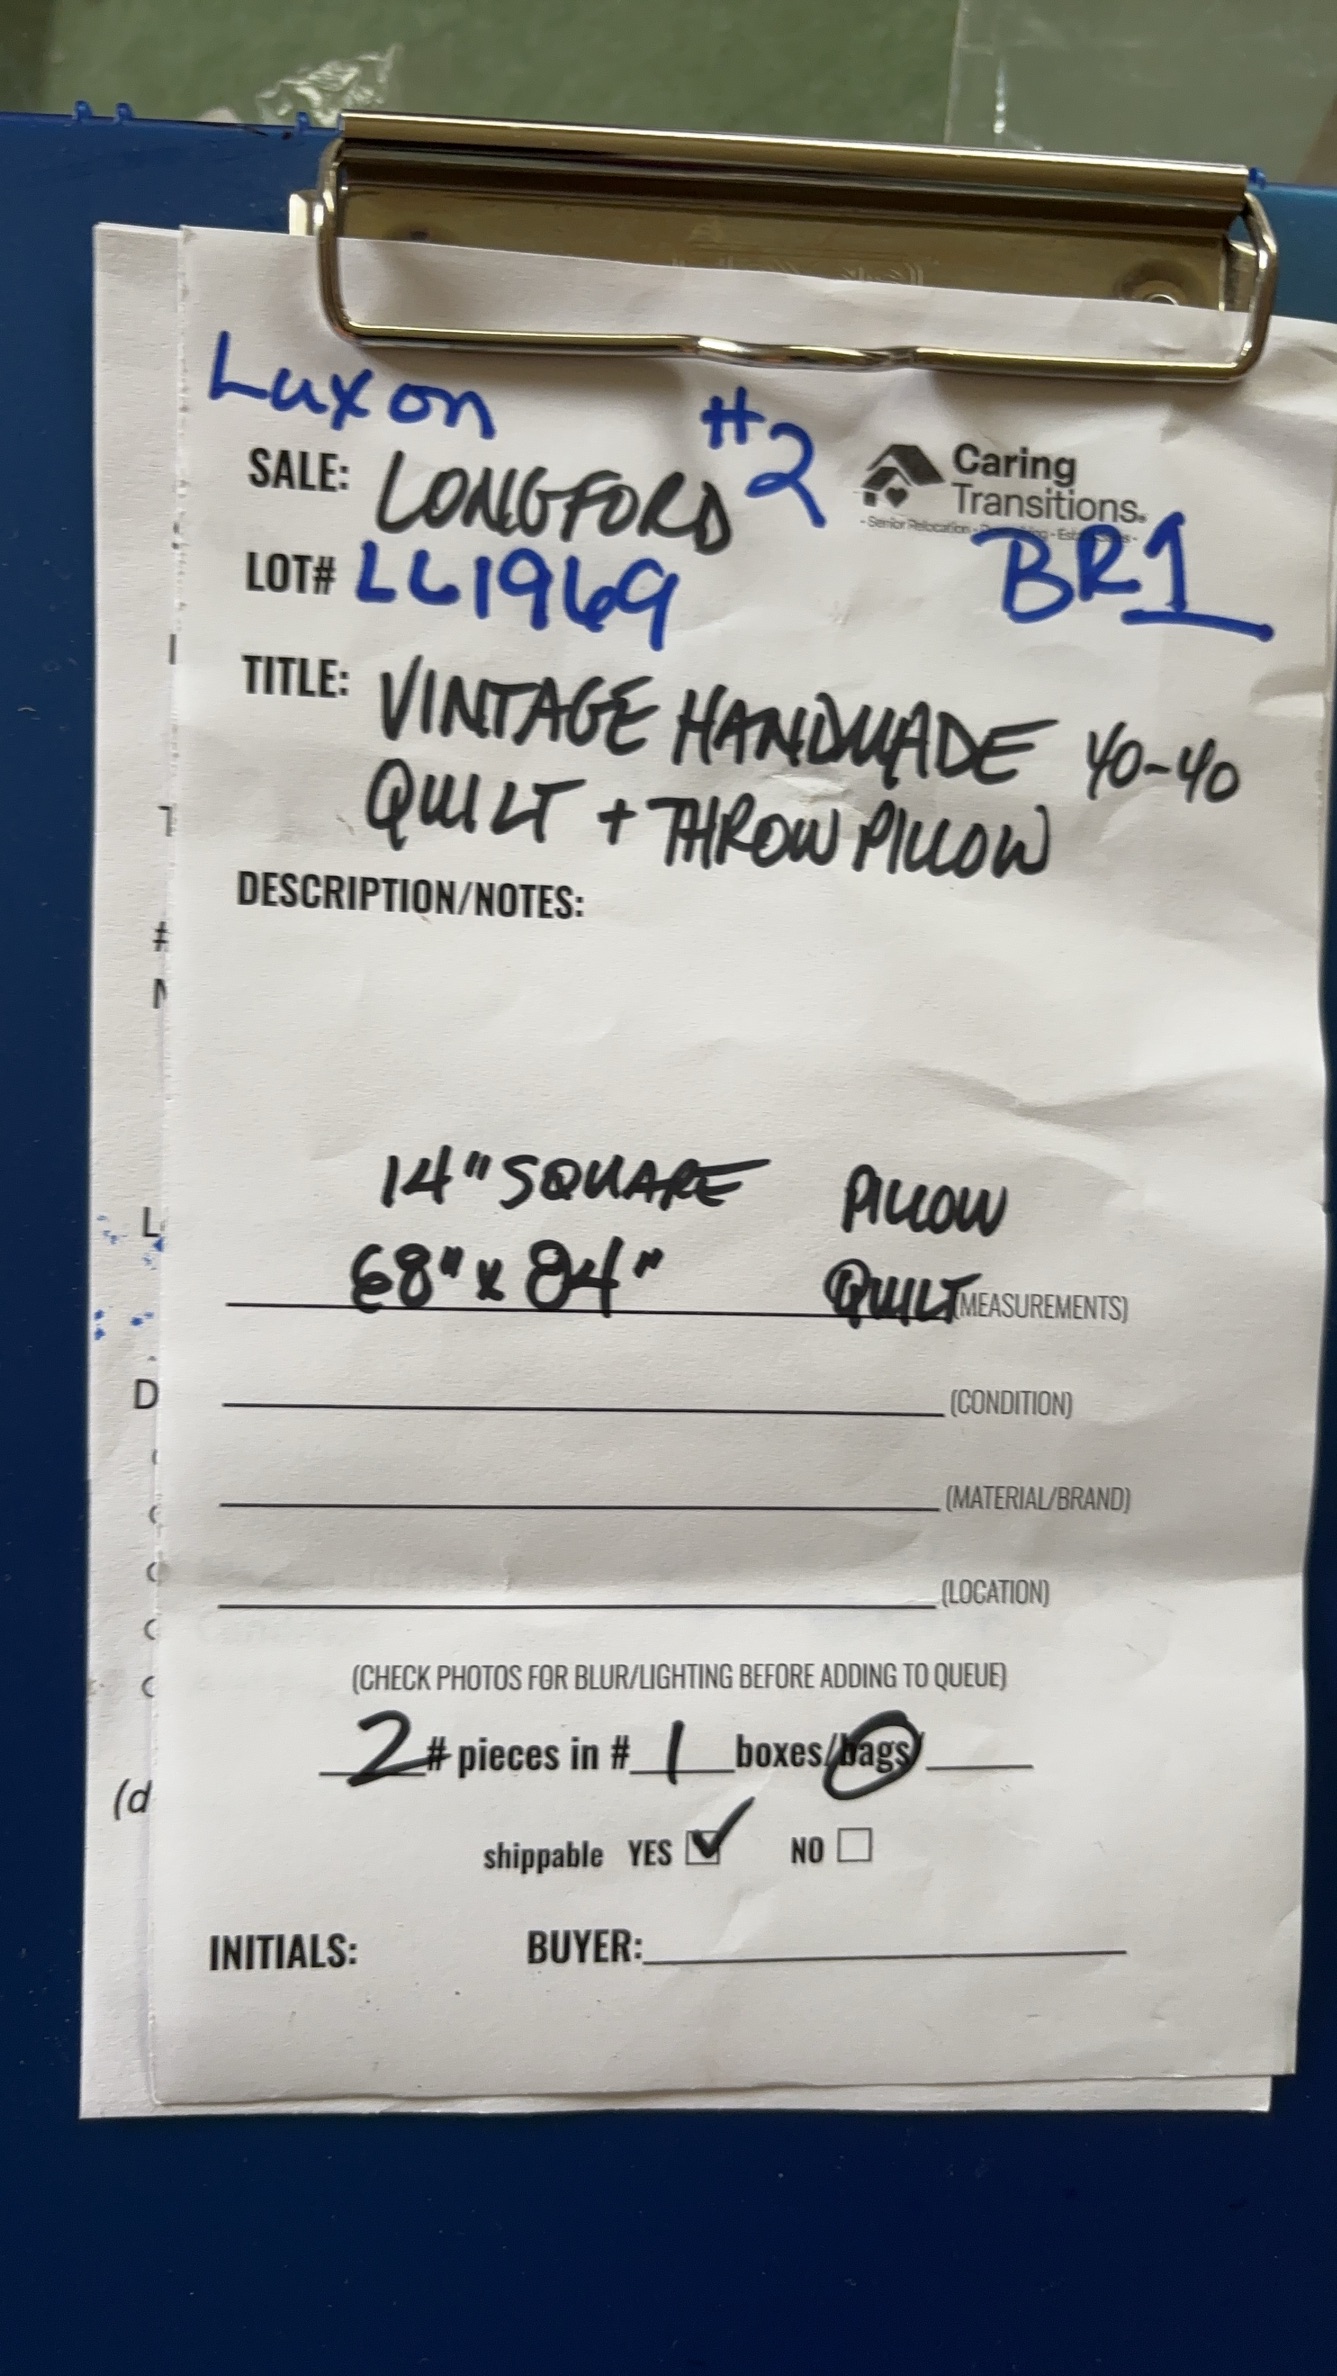 Luxon #2
SALE: LONGFORD
Caring
Transitions.
- Senior Relocation -
LOT# LL1969
BR1
TITLE: VINTAGE HANDMADE 40-40
QUILT + THROW PILLOW
DESCRIPTION/NOTES:
14" SQUARE PILLOW
68" x 84" QUILT (MEASUREMENTS)
(CONDITION)
(MATERIAL/BRAND)
(LOCATION)
(CHECK PHOTOS FOR BLUR/LIGHTING BEFORE ADDING TO QUEUE)
2 # pieces in # 1 boxes/bags/
shippable YES ☑ NO ☐
INITIALS: BUYER: